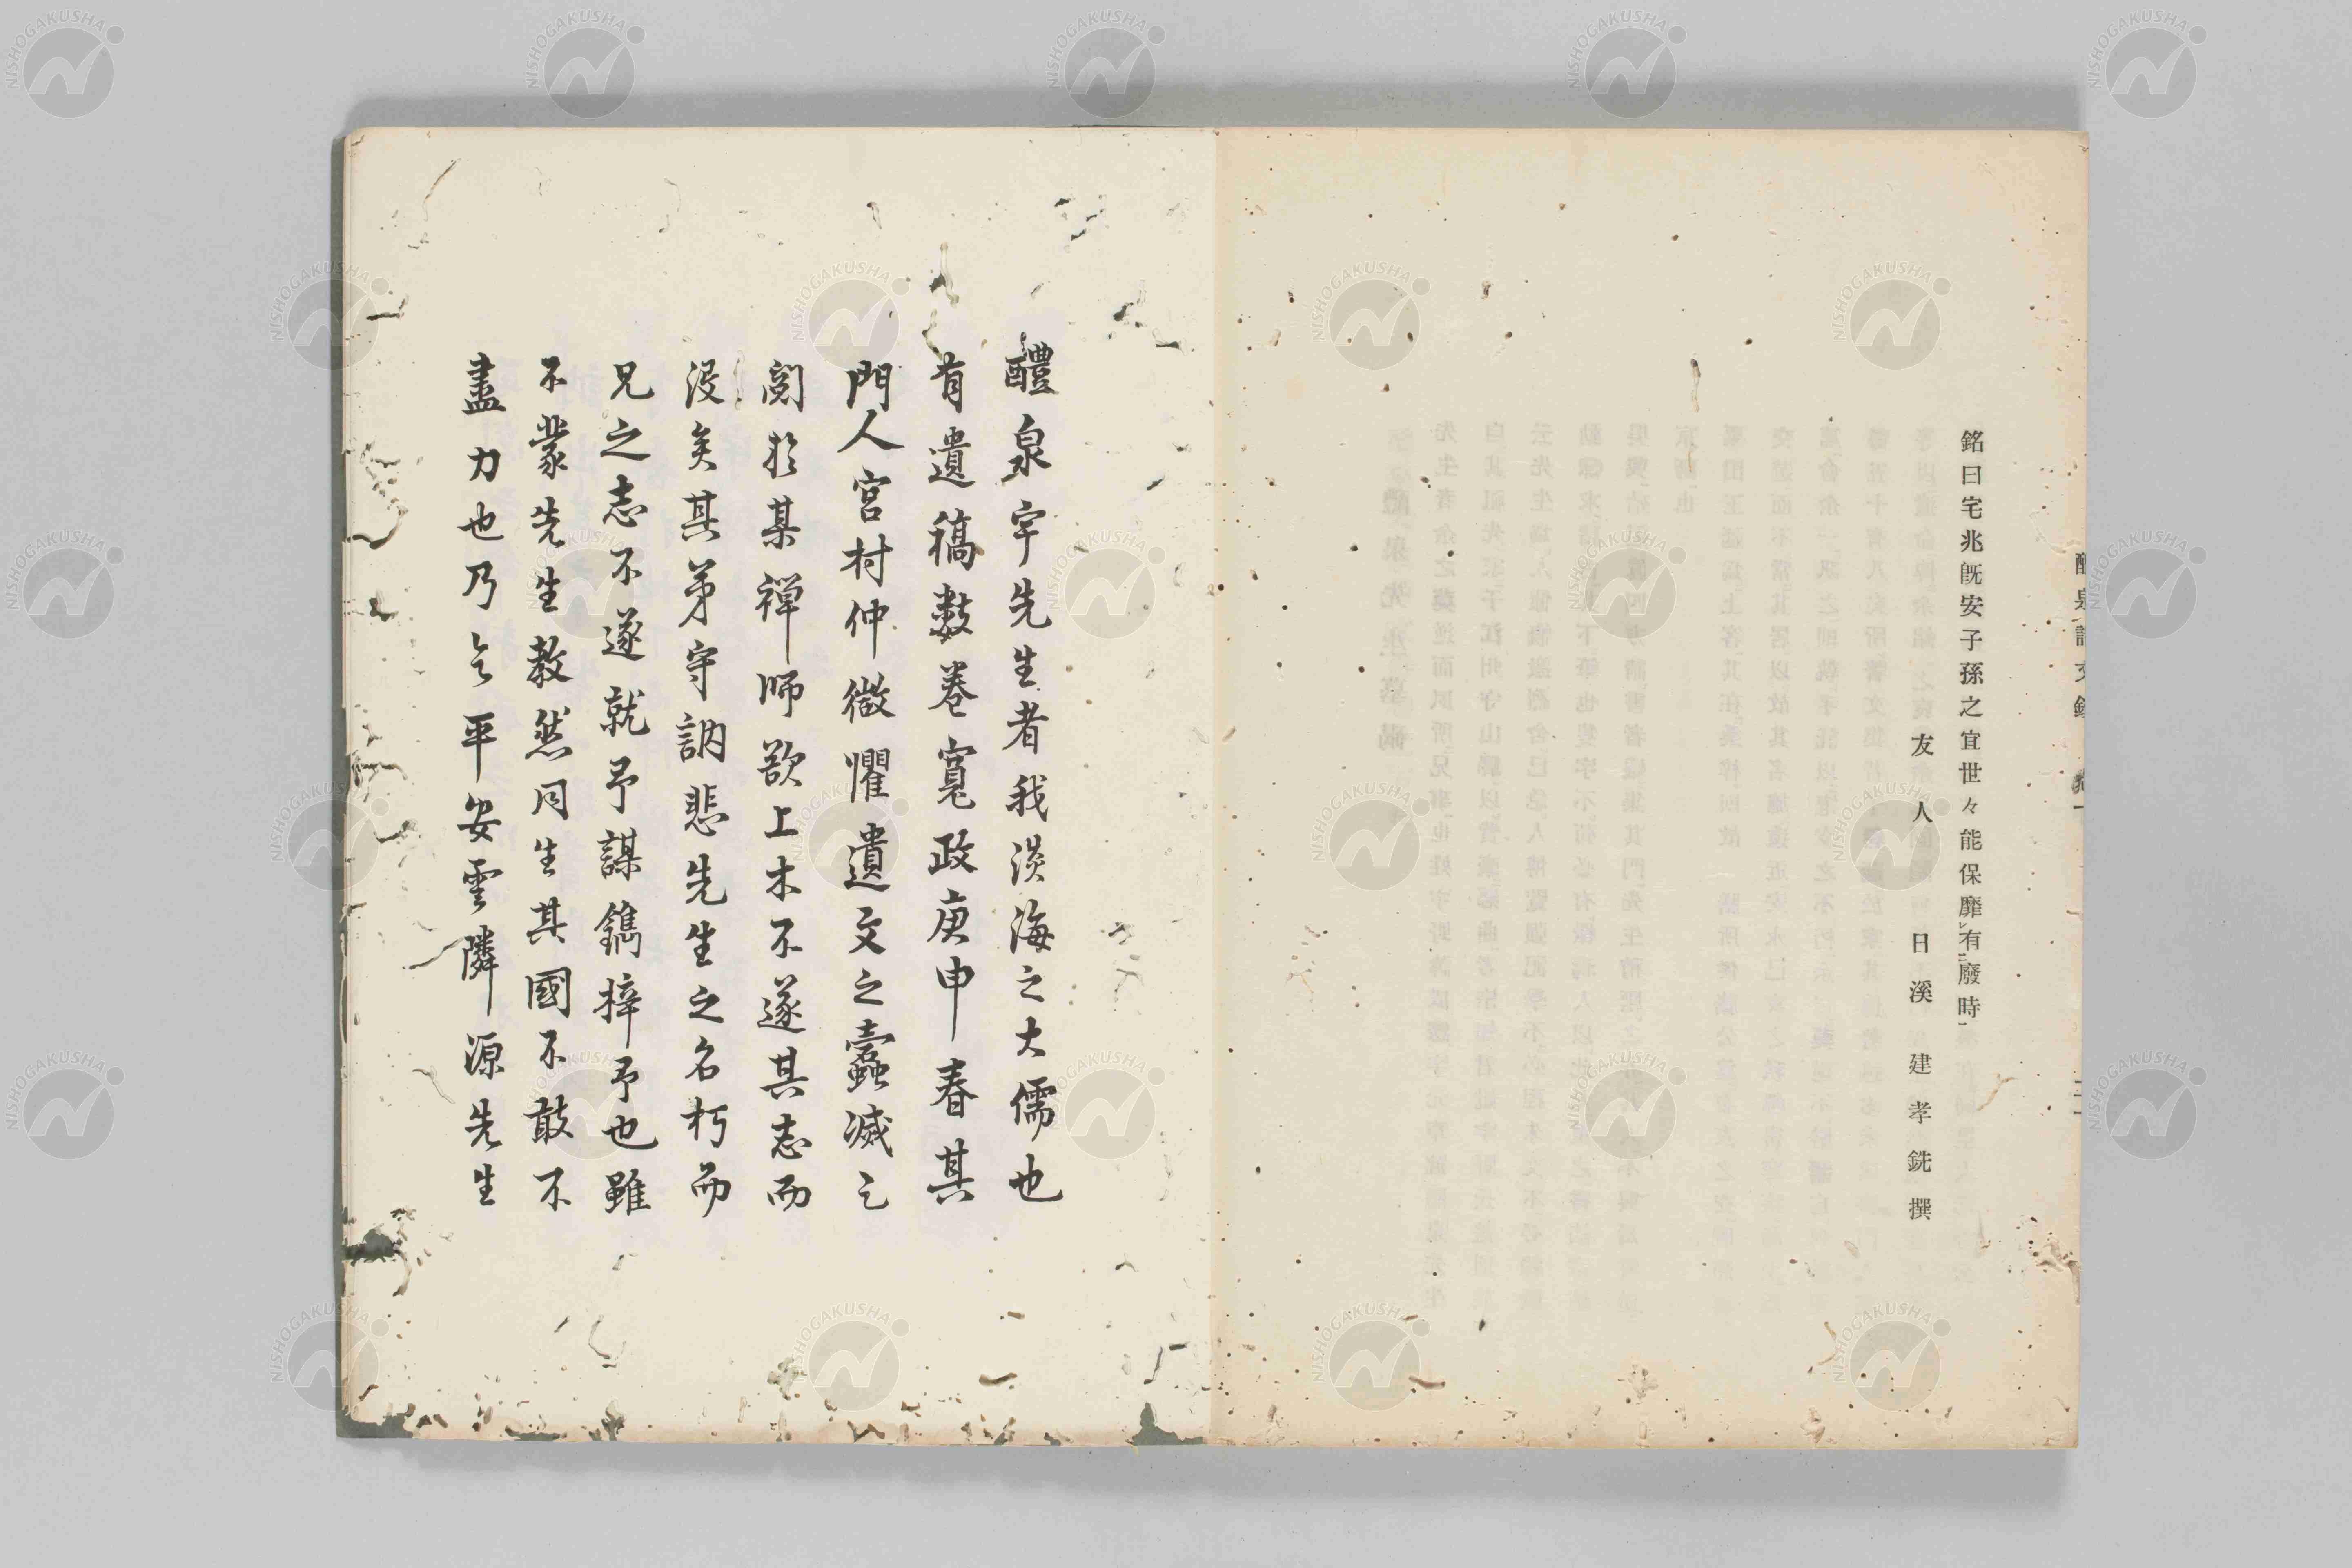 銘曰宅兆既安子孫之宜世々能保靡有廢時
友人 日溪 建孝銑撰
醴泉宇先生者我淡海之大儒也
有遺稿數卷寬政庚申春其
門人宮村仲微懼遺文之蠹滅之
閲於某禪師欲上木不遂其志而
没矣其弟守訥悲先生之名朽而
兄之志不遂就予謀鐫梓予也雖
不蒙先生教然同生其國不敢不
盡力也乃乞平安雲隣源先生
NISHOGAKUSHA